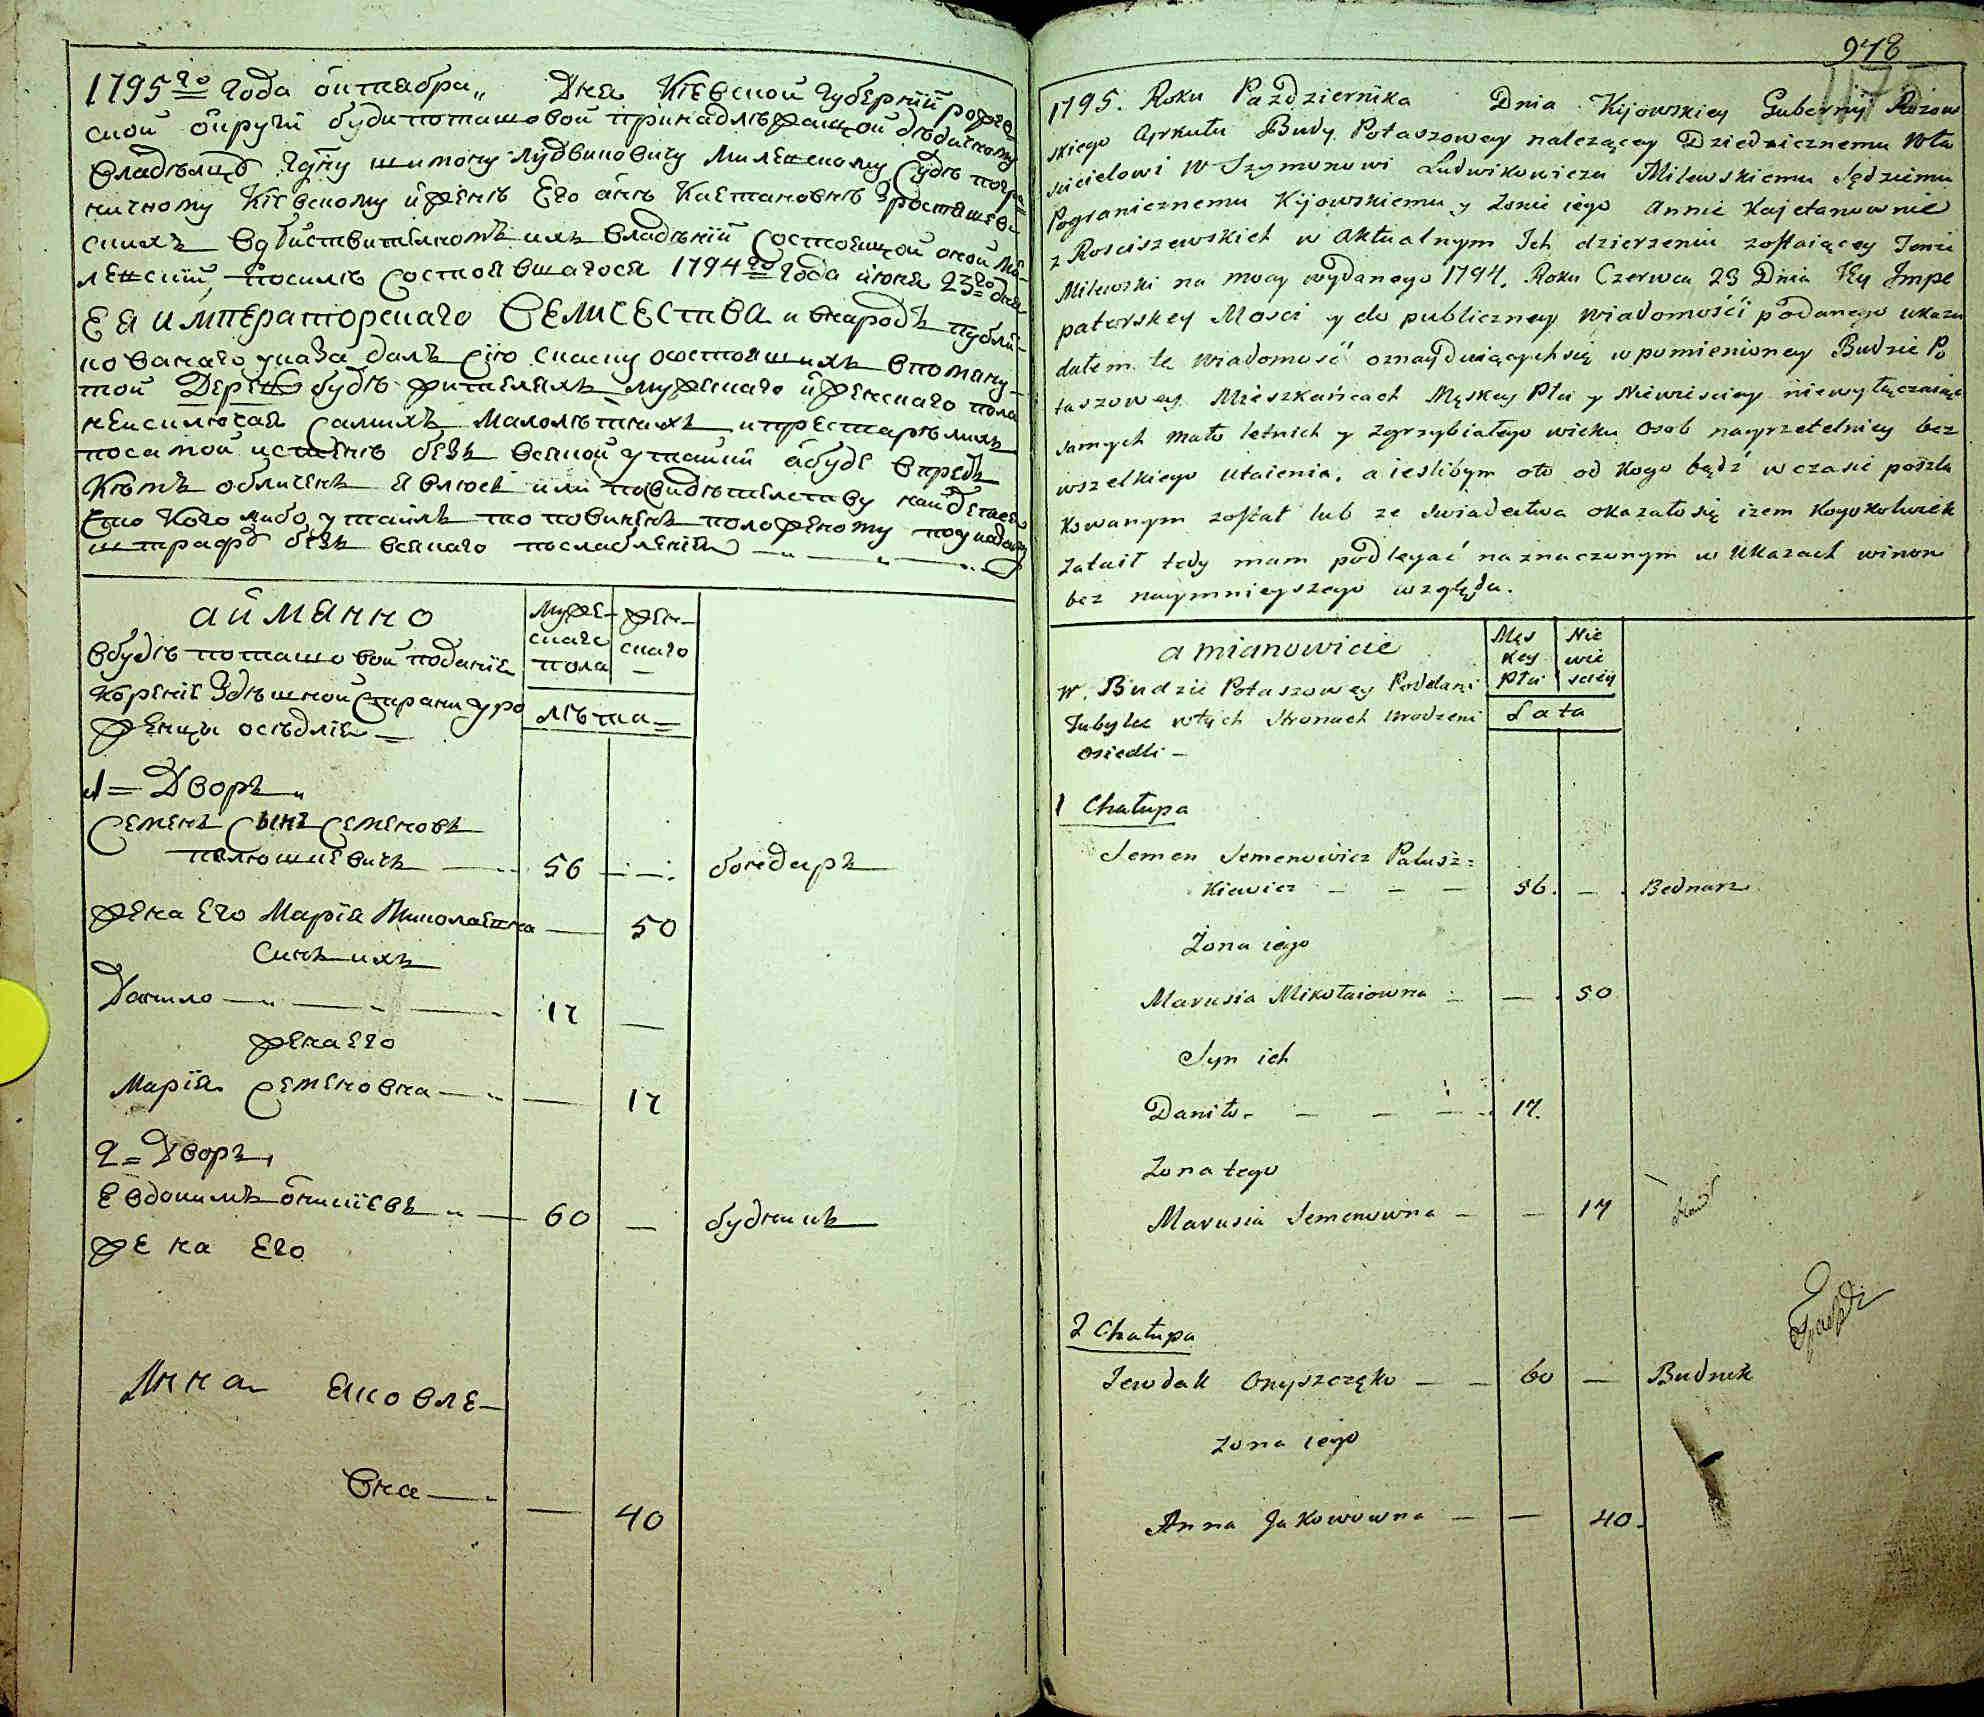 1795го года октабра„ Дня Кіевской губерніи рофѣ
ской округи буди поташовой принадлѣжащой дѣдичному
владѣлцѣ гдну шимону людвиковичу Милевскому Судѣ погра
ничному Кіевскому и женѣ Его аннѣ Каетановнѣ Зростишевъ
скихъ вдѣйствителномъ ихъ владѣніи состоящой оной Ми
левскій, посилѣ состоявшагося 1794го года июня 23го дня
ЕЯ ИМПЕРАТОРСКАГО ВЕЛИЧЕСТВА и внародъ публи-
кованаго указа далъ сію скаску осостоящихъ впомяну-
той Деревнѣ будѣ жителяхъ мужескаго и женскаго пола
неисключая самихъ малолѣтнихъ ипрестарѣлихъ
посамой истиннѣ безъ всякой утайки абуде впредь
Кѣмъ обличенъ явлюсь или посвидѣтелству найдется
что Кого либо утаилъ то повиненъ положеному подпадать
штрафѣ безъ всякаго послабленія
аймянно
мужескаго пола
женскаго
вбудѣ поташовой поданіе
Корение Здѣшной Сторани уро
женцы осѣдліе
лѣта
1 = Дворъ„
Семенъ Сынъ Семеновъ
палюшкевичъ 56 бондаръ
жена Его Марія Николаевна 50
Синъ ихъ
Данило 17
жена Его
Марія Семеновна 17
2 = Дворъ,
Евдокимъ онисіевъ 60 будникъ
жена Его
Анна Яковле-
вна 40
978
1175
1795. Roku Października Dnia Kijowskiey Gubernij Rożow
skiego Cyrkułu Budy Potaszowey nalezącey Dziedzicznemu Wła
scicielowi W Szymonowi Ludwikowiczu Milewskiemu Sędziemu
Pogranicznemu Kijowskiemu y Zonie iego Annie Kajetanownie
z Rosciszewskich w Aktualnym Ich dzierzeniu zostaiącey Ja
Milewski na mocy wydanego 1794. Roku Czerwca 23 Dnia Jey Impe
ratorskey Mosci y do publiczney wiadomości podanego ukazu
dałem tę wiadomość o znayduiących się w pomienioney Budzie Po
taszowey Mieszkańcach Męskey Płci y Niewiesciey niewyłączaiąc
samych mało letnich y zgrzybiałego wieku Osob nayrzetelniey bez
wszelkiego utaienia. a ieslibym oto od kogo bądź w czasie poszla
kowanym został lub ze swiadectwa okazało się izem kogokolwiek
zataił tedy mam podlegać naznaczonym w Ukazach winom
bez naymnieyszego względu.
a mianowicie
Męs
key
Płci
Nie
wie
sciey
W. Budzie Potaszowey Poddani
Tubylce w tych Stronach urodzeni
osiedli –
Lata
1 Chałupa
Semen Semenowicz Palusz=
kiewicz – – – 56. – . Bednarz
Żona iego
Marusia Mikołaiowna – – . 50
Syn ich
Daniło – – – – 17.
Zona tego
Marusia Semenowna – – 17
2 Chałupa
Jewdak Onyszczęko – – 60 – Budnik
zona iego
Anna Jakowowna – – 40.